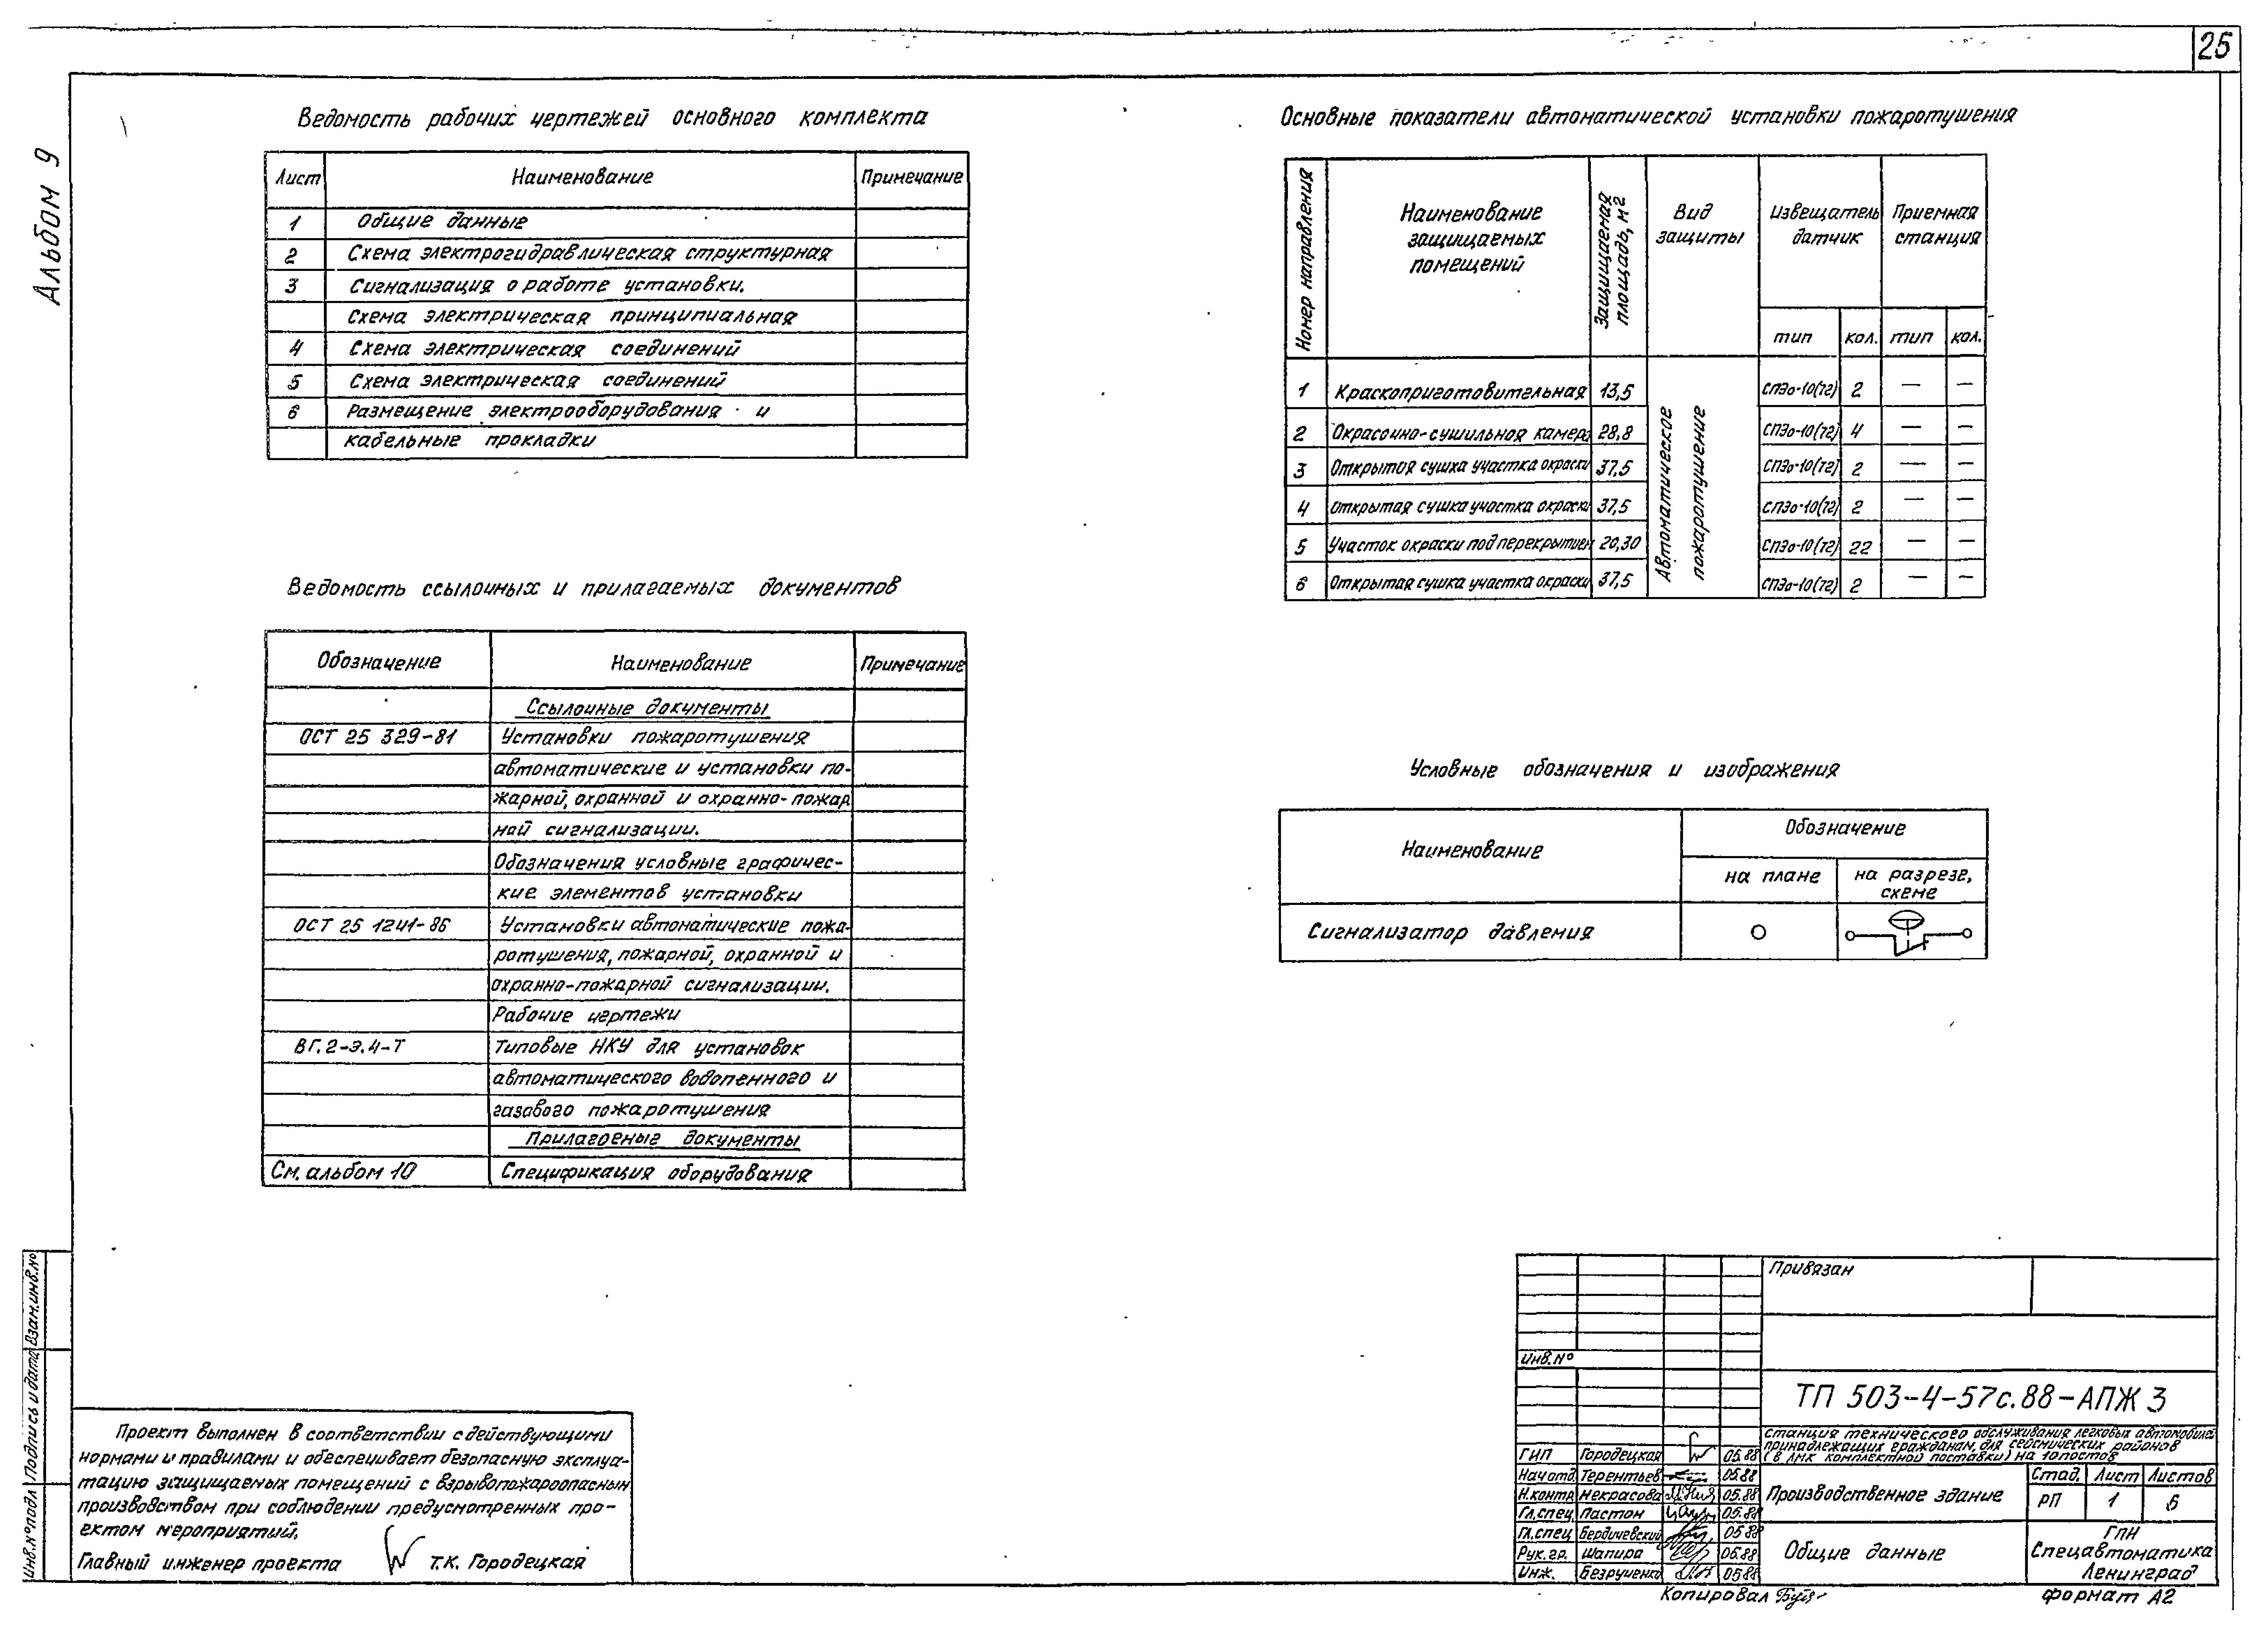 25
Альбом 9
Ведомость рабочих чертежей основного комплекта
Лист Наименование Примечание
1 Общие данные
2 Схема электрогидравлическая структурная
3 Сигнализация о работе установки.
Схема электрическая принципиальная
4 Схема электрическая соединений
5 Схема электрическая соединений
6 Размещение электрооборудования и
кабельные прокладки
Ведомость ссылочных и прилагаемых документов
Обозначение Наименование Примечание
Ссылочные документы
ОСТ 25 329-81 Установки пожаротушения
автоматические и установки по-
жарной, охранной и охранно-пожар
ной сигнализации.
Обозначения условные графичес-
кие элементов установки
ОСТ 25 1241-86 Установки автоматические пожа-
ротушения, пожарной, охранной и
охранно-пожарной сигнализации.
Рабочие чертежи
ВГ.2-Э.4-Т Типовые НКУ для установок
автоматического водопенного и
газового пожаротушения
Прилагаемые документы
См. альбом 10 Спецификация оборудования
Основные показатели автоматической установки пожаротушения
Номер направления
Наименование защищаемых помещений
Защищаемая площадь, м2
Вид защиты
Извещатель датчик
Приемная станция
тип кол. тип кол.
1 Краскоприготовительная 13,5 СПЭо-10(72) 2 — —
2 Окрасочно-сушильная камера 28,8 СПЭо-10(72) 4 — —
3 Открытая сушка участка окраски 37,5 СПЭо-10(72) 2 — —
4 Открытая сушка участка окраски 37,5 СПЭо-10(72) 2 — —
5 Участок окраски под перекрытием 20,30 СПЭо-10(72) 22 — —
6 Открытая сушка участка окраски 37,5 СПЭо-10(72) 2 — —
Автоматическое пожаротушение
Условные обозначения и изображения
Наименование Обозначение
на плане на разрезе, схеме
Сигнализатор давления
Взам.инв.№
Подпись и дата
Инв.№подл
Проект выполнен в соответствии с действующими
нормами и правилами и обеспечивает безопасную эксплуа-
тацию защищаемых помещений с взрывопожароопасным
производством при соблюдении предусмотренных про-
ектом мероприятий.
Главный инженер проекта Т.К. Городецкая
Привязан
Инв.№
ТП 503-4-57с.88-АПЖ 3
Станция технического обслуживания легковых автомобилей
принадлежащих гражданам, для сейсмических районов
(в ЛМК комплектной поставки) на 10 постов
ГИП Городецкая 05.88
Нач.отд. Терентьев 05.88
Н.контр Некрасова 05.88
Гл.спец. Пастон 05.88
Гл.спец Бердичевский 05.88
Рук.гр. Шапира 05.88
Инж. Безрученко 05.88
Производственное здание
Стад. Лист Листов
РП 1 6
Общие данные
ГПН
Спецавтоматика
Ленинград
Копировал
формат А2